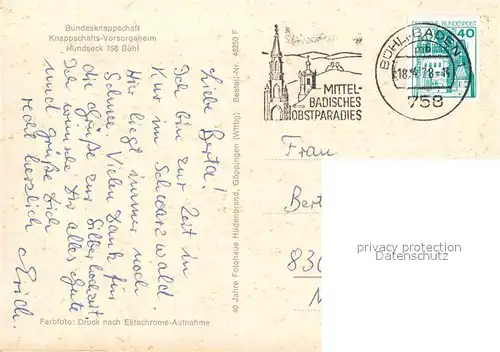 Bundesknappschaft
Knappschafts-Vorsorgeheim
Hundseck 758 Bühl
Liebe Berta!
Ich bin zur Zeit in
Kur im Schwarzwald.
Hier liegt immer noch
Schnee. Vielen Dank für
die Grüße zur Silberhochzeit.
Ich wünsche Dir alles Gute
und grüße Dich
recht herzlich
Erich.
Farbfoto: Druck nach Ektachrome-Aufnahme
40 Jahre Fotohaus Hildenbrand, Göppingen (Wttbg) Bestell-Nr. 46250 F
MITTEL-
BADISCHES
OBSTPARADIES
BÜHL, BADEN
mb
758
DEUTSCHE BUNDESPOST
40
Frau
Bert
privacy protection
Datenschutz